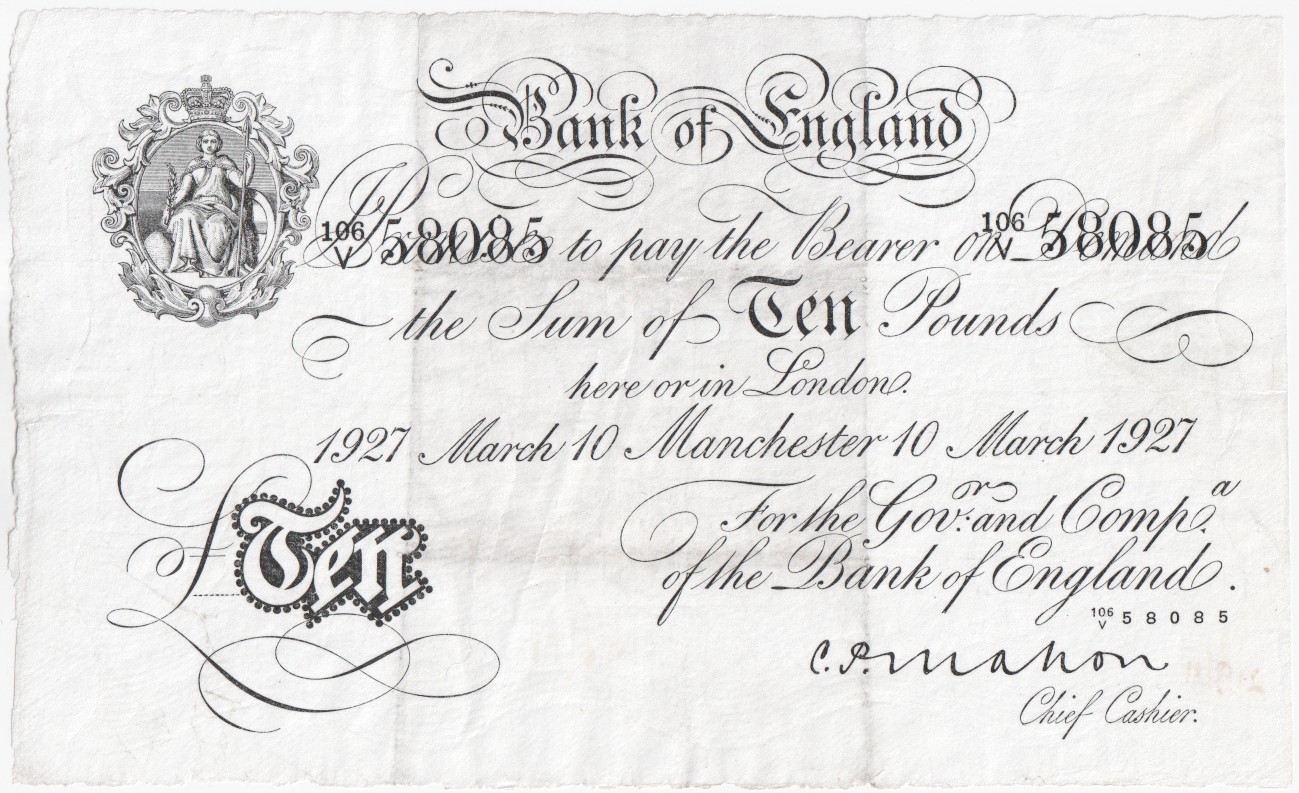 Bank of England
106/V 58085 106/V 58085
I Promise to pay the Bearer on Demand
the Sum of Ten Pounds
here or in London.
1927 March 10 Manchester 10 March 1927
For the Govr: and Compa.
of the Bank of England.
£Ten
106/V 58085
C. P. Mahon
Chief Cashier.